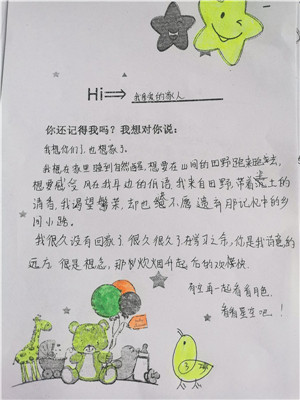 Hi⇒ 我亲爱的家人
你还记得我吗？我想对你说：
我想你们了，也想家了。
我想在家里睡到自然醒，想要在山间的田野跑来跑去，
想要感受风在我耳边的低语，我来自田野，带着泥土的
清香，我渴望繁荣，却也绝不愿遗弃那记忆中的乡
间小路。
我很久没有回家了很久很久了在学习之余，你是我诗意的
远方 很是想念，那炊烟升起后的欢愉快
有空再一起看看月色，
看看星空吧！